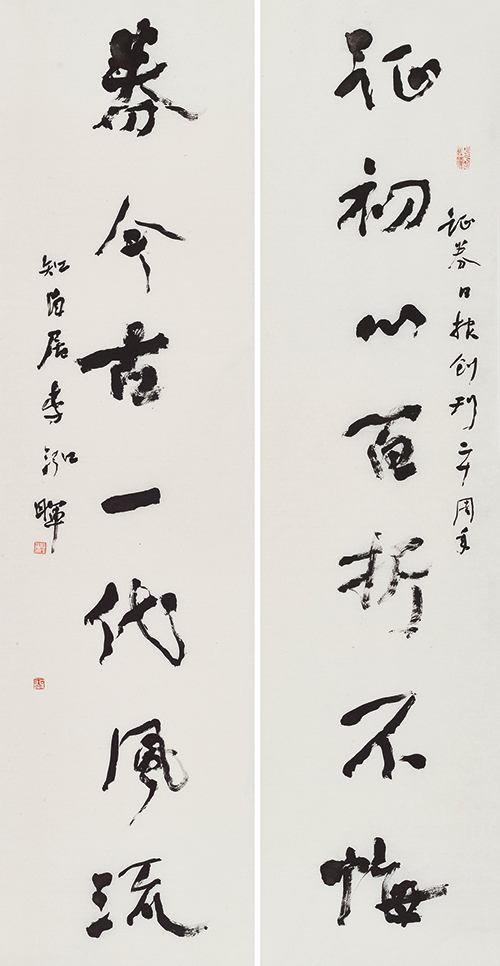 证券日报创刊二十周年
证初心百折不悔
券今古一代風流
知 居李 暉